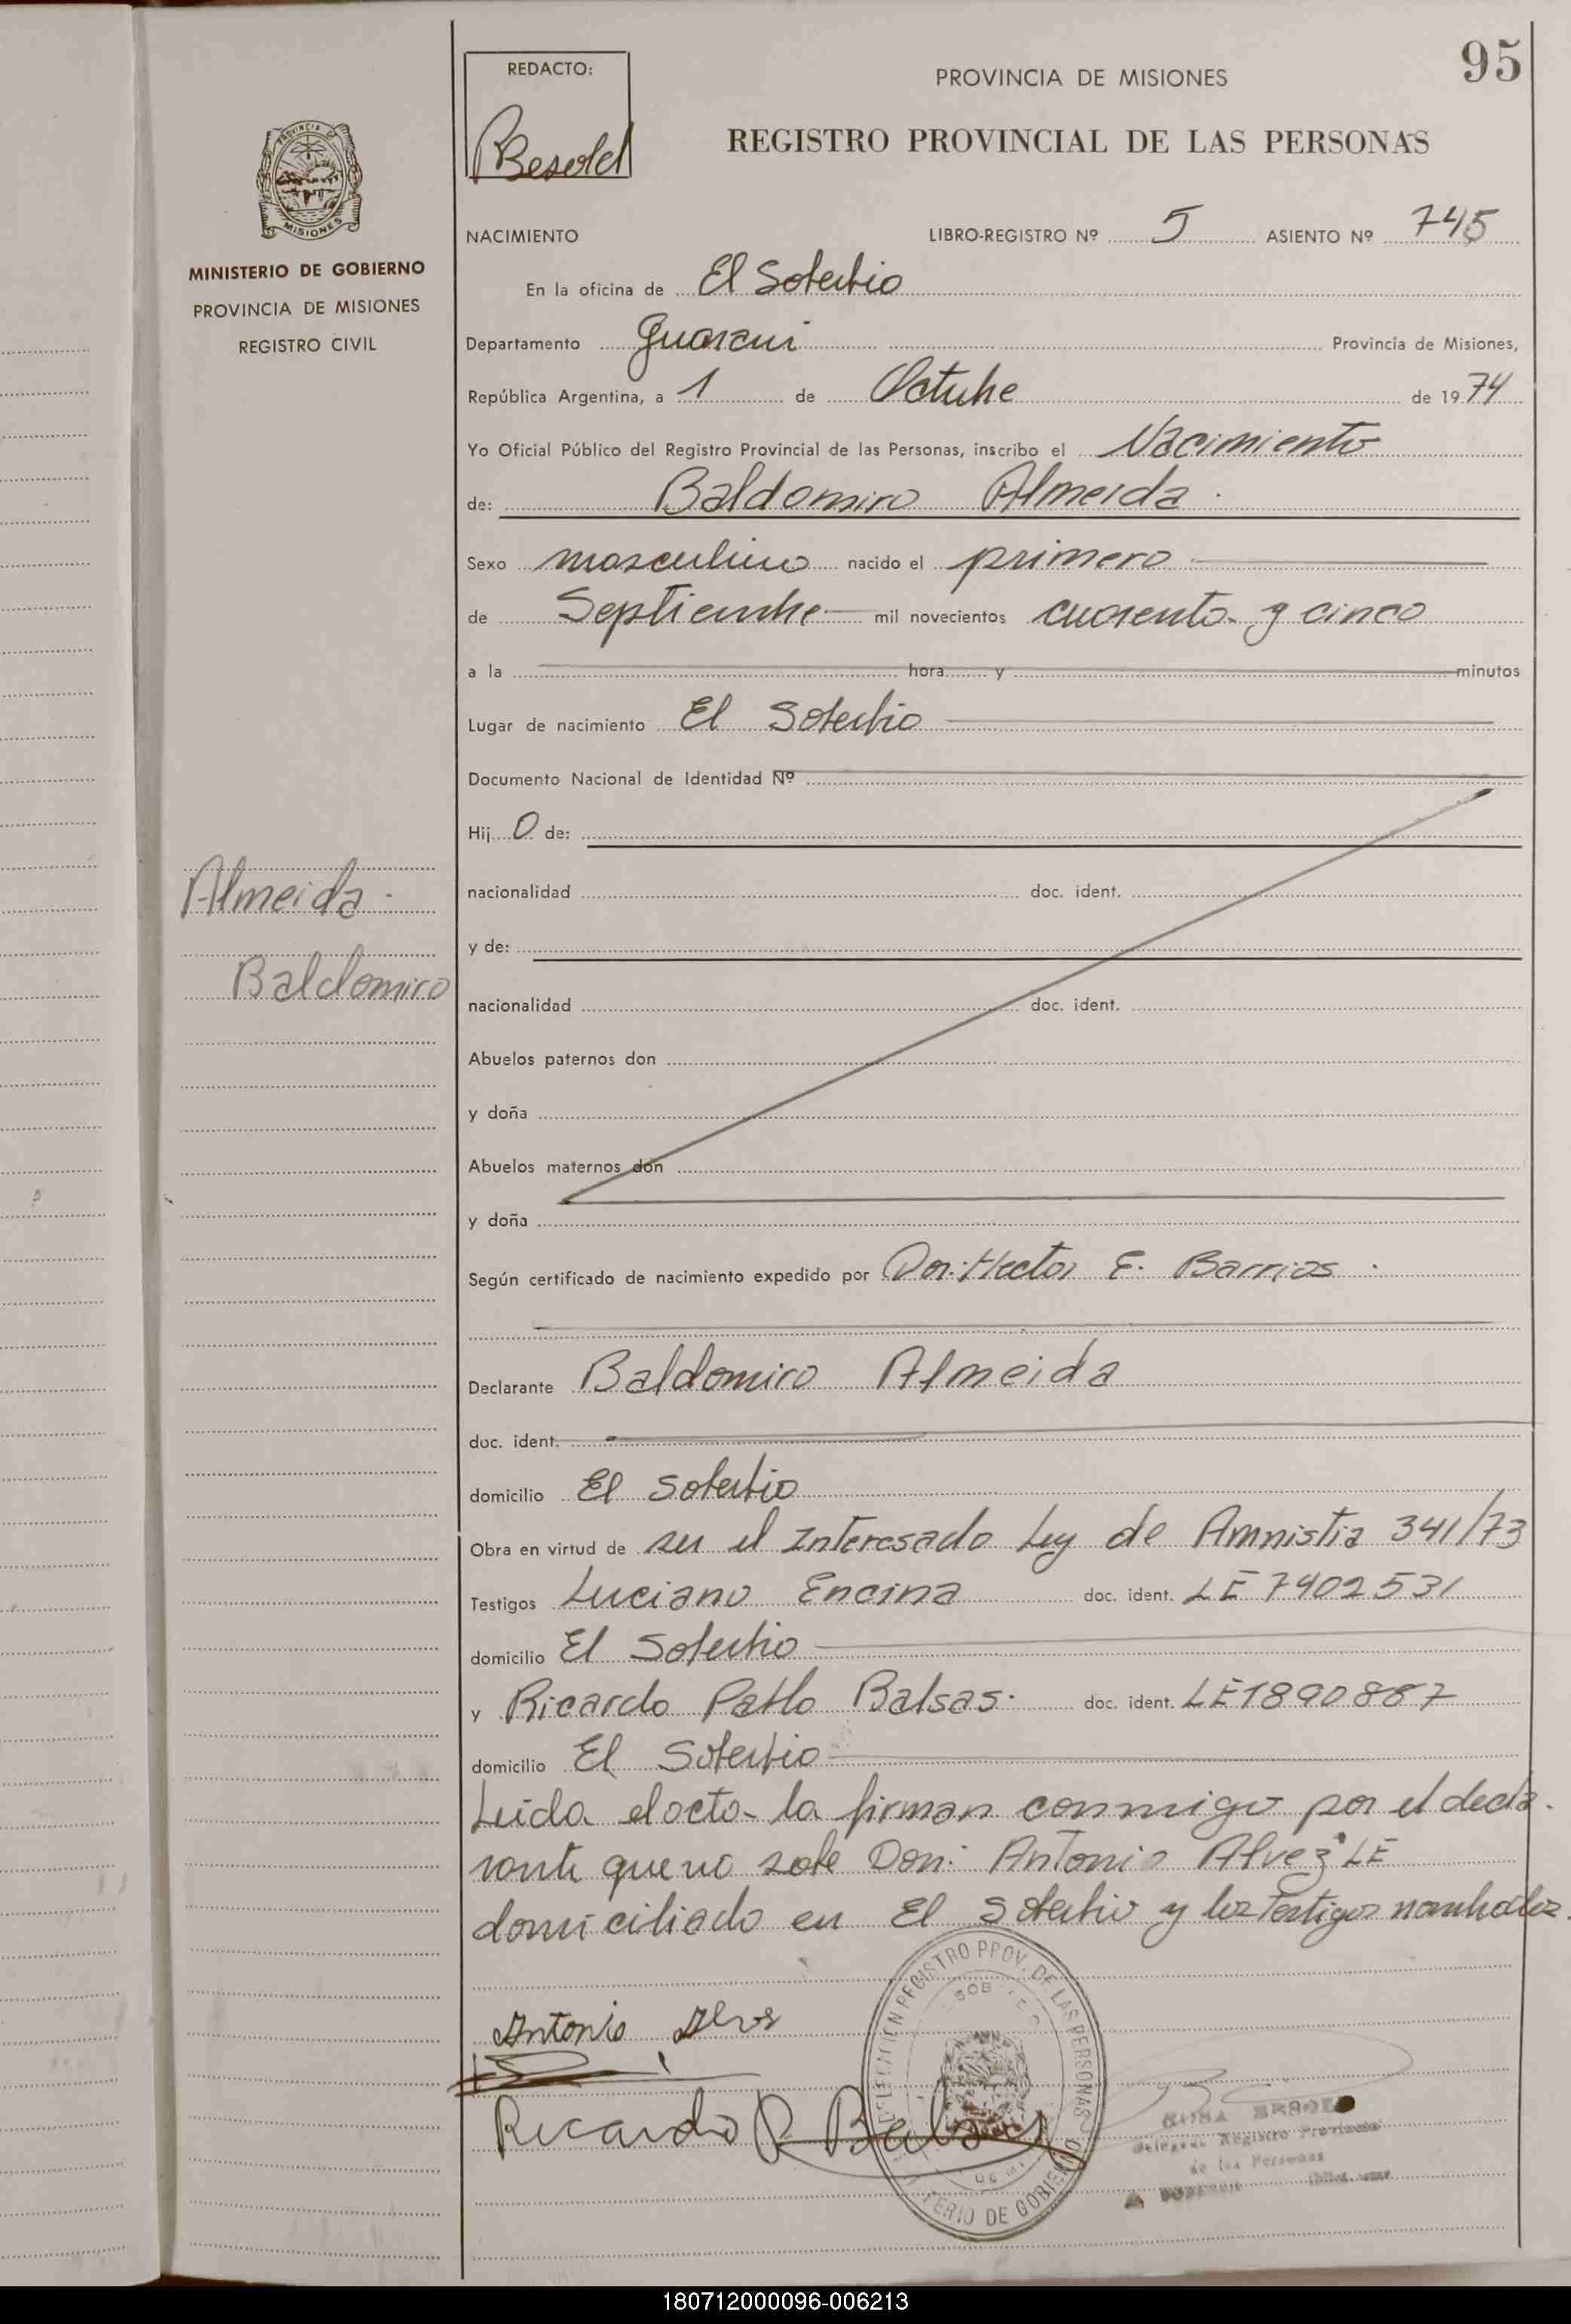 95
REDACTO:
Besold
PROVINCIA DE MISIONES
REGISTRO PROVINCIAL DE LAS PERSONAS
PROVINCIA DE
MISIONES
MINISTERIO DE GOBIERNO
PROVINCIA DE MISIONES
REGISTRO CIVIL
NACIMIENTO LIBRO-REGISTRO Nº 5 ASIENTO Nº 745
En la oficina de El Soberbio
Departamento Guarani Provincia de Misiones,
República Argentina, a 1 de Octubre de 1974
Yo Oficial Público del Registro Provincial de las Personas, inscribo el Nacimiento
de: Baldomiro Almeida.
Sexo masculino nacido el primero
de Septiembre mil novecientos cuarenta y cinco
a la hora y minutos
Lugar de nacimiento El Soberbio
Documento Nacional de Identidad Nº
Hij o de:
nacionalidad doc. ident.
y de:
nacionalidad doc. ident.
Abuelos paternos don
y doña
Abuelos maternos don
y doña
Almeida.
Baldomiro
Según certificado de nacimiento expedido por Dor. Hector E. Barrios.
Declarante Baldomiro Almeida
doc. ident.
domicilio El Soberbio
Obra en virtud de ser el Interesado Ley de Amnistia 341/73
Testigos Luciano Encina doc. ident. LE 7402531
domicilio El Soberbio
y Ricardo Pablo Balsas. doc. ident. LE 1890887
domicilio El Soberbio
Leida el acta la firman conmigo por el decla-
rante que no sabe Don: Antonio Alvez LE
domiciliado en El Soberbio y los testigos nombrados.
Antonio
Ricardo P. Balsas
REGISTRO PROV. DE LAS PERSONAS
DE GOBIERNO
ROSA BESOLD
Delegada Registro Provincial
de las Personas
180712000096-006213